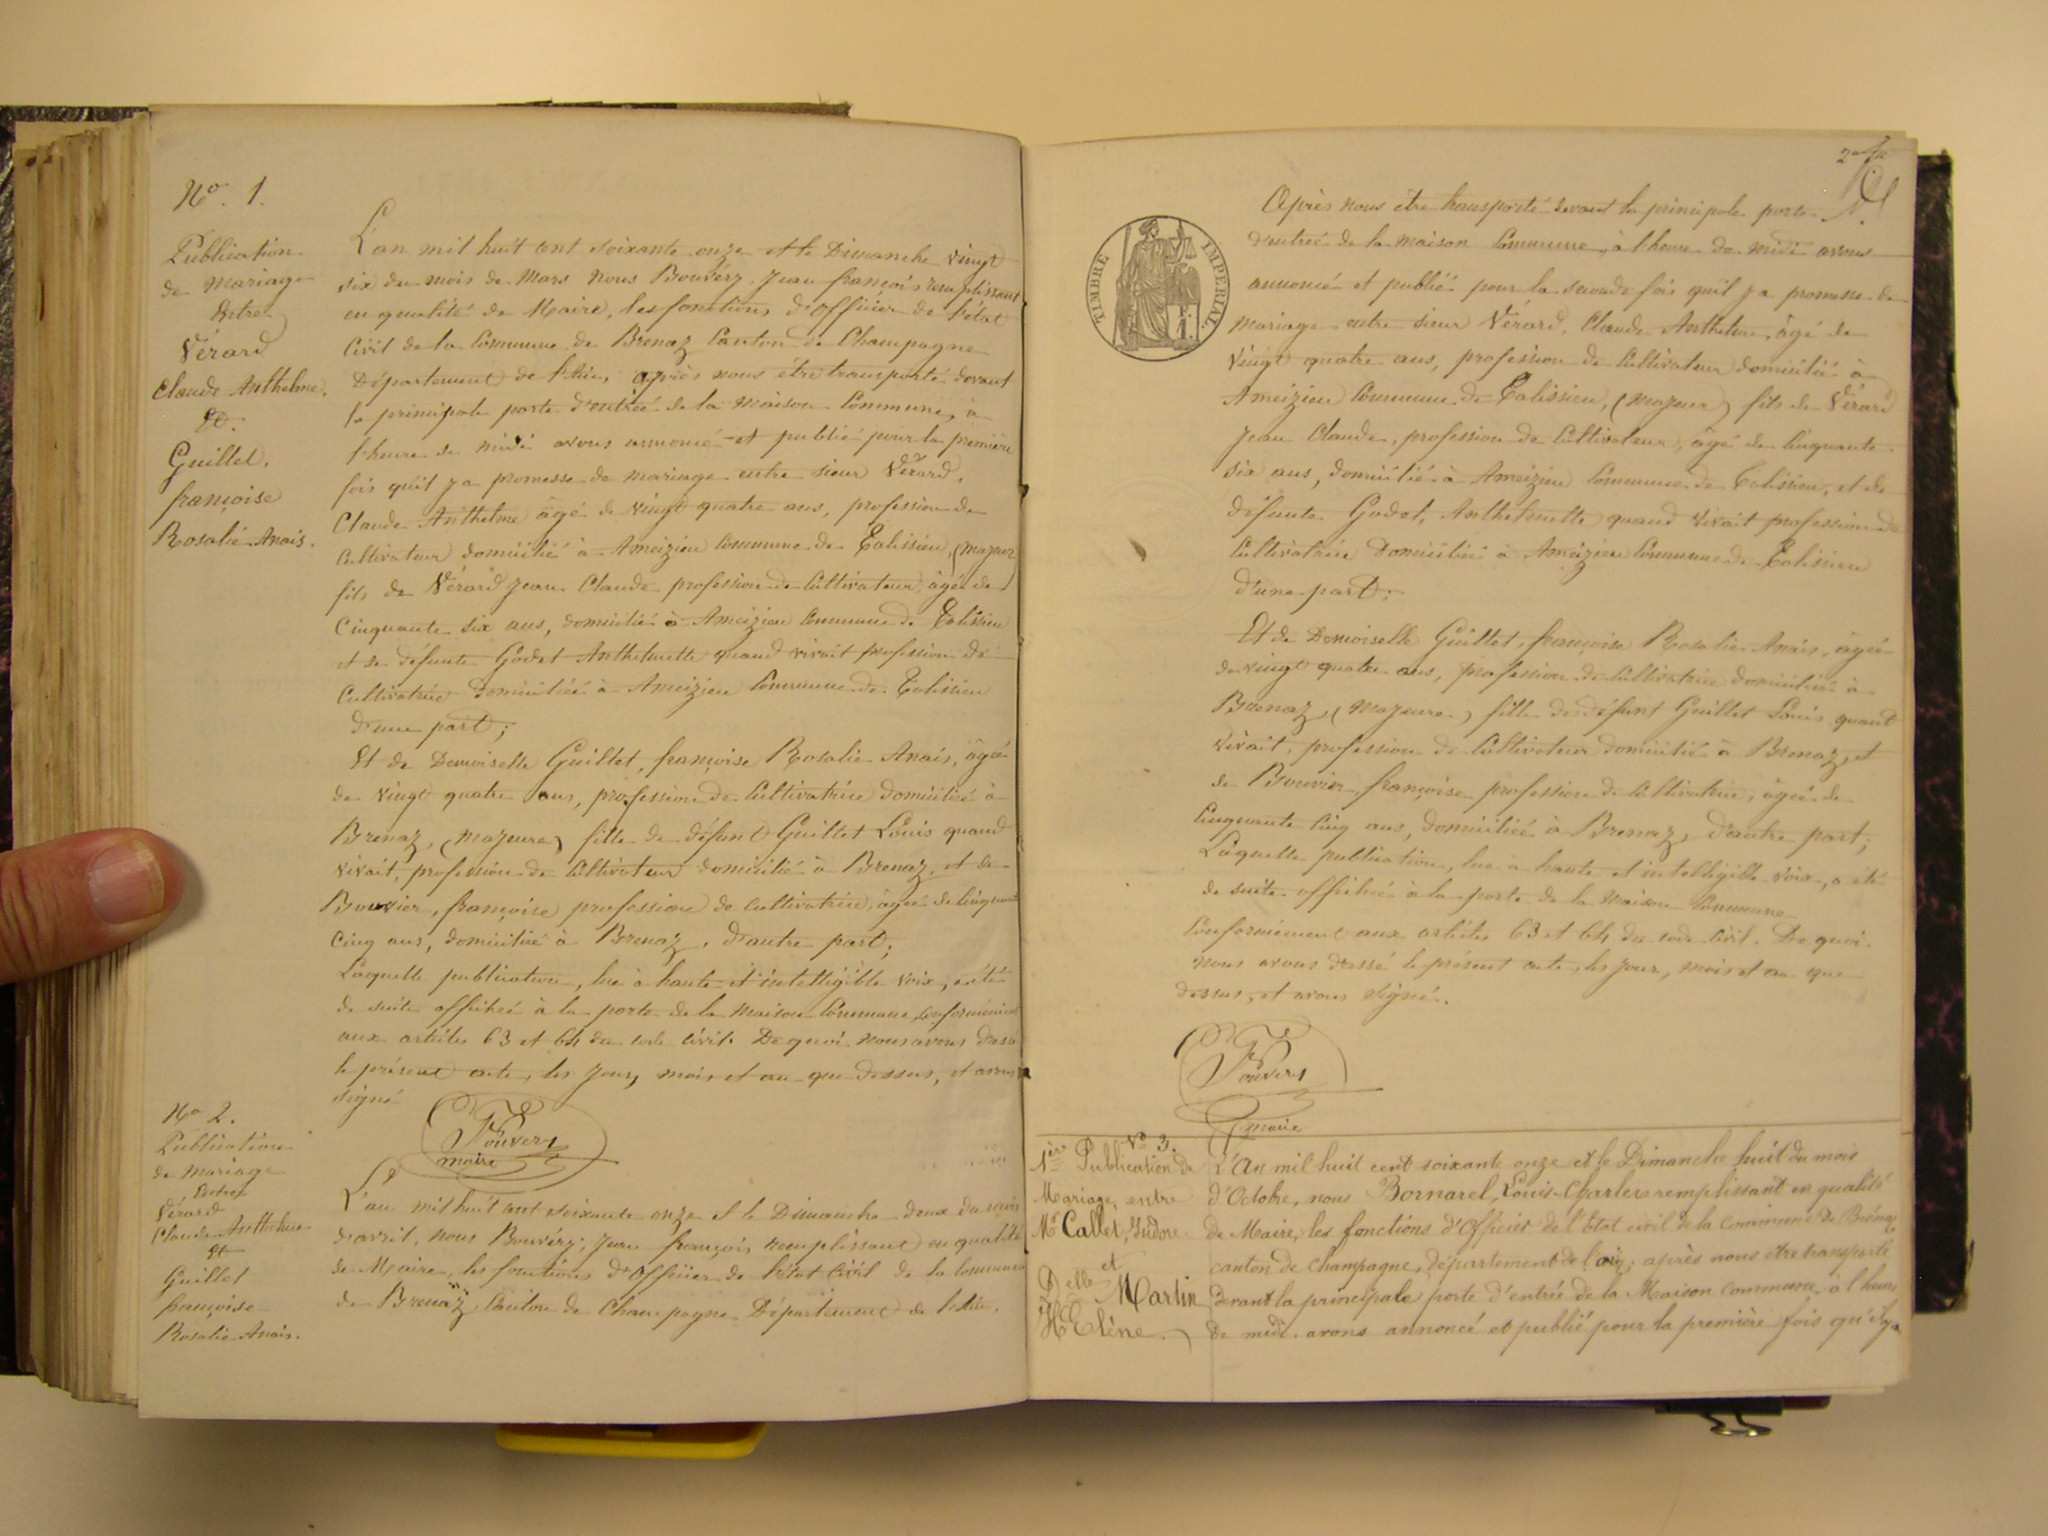 N° 1.
Publication
de mariage
Entre
Vérard
Claude Anthelme.
Et.
Guillet.
françoise
Rosalie Anais.
L'an mil huit cent soixante onze et le Dimanche vingt
six du mois de Mars nous Bouvery Jean françois remplissant
en qualité de Maire, les fonctions d'officier de l'état
Civil de la Commune de Brenaz Canton de Champagne
Département de l'Ain, après nous être transporté devant
la principale porte d'entrée de la maison Commune, à
l'heure de midi avons annoncé et publié pour la première
fois qu'il y a promesse de mariage entre sieur Vérard,
Claude Anthelme âgé de vingt quatre ans, profession de
Cultivateur domicilié à Ameizieu Commune de Talissieu, (majeur)
fils de Vérard Jean Claude profession de Cultivateur, âgé de
Cinquante six ans, domicilié à Ameizieu Commune de Talissieu
et de défunte Godet Anthelmette quand vivait profession de
Cultivatrice domiciliée à Ameizieu Commune de Talissieu
d'une part;
Et de Demoiselle Guillet, françoise Rosalie Anais, âgée
de vingt quatre ans, profession de Cultivatrice domiciliée à
Brenaz, (majeure) fille de défunt Guillet Louis quand
vivait, profession de Cultivateur domicilié à Brenaz, et de
Bouvier, françoise profession de cultivatrice, âgée de Cinquante
Cinq ans, domiciliée à Brenaz, d'autre part;
Laquelle publication, lue à haute et intelligible voix, a été
de suite affichée à la porte de la maison Commune, conformément
aux articles 63 et 64 du code civil. De quoi nous avons dressé
le présent acte, les jour, mois et an que dessus, et avons
signé
Bouvery
maire
N° 2.
Publication
de mariage
Entre
Vérard
Claude Anthelme
Et
Guillet
françoise
Rosalie Anais.
L'an mil huit cent soixante onze et le Dimanche deux du mois
d'avril, nous Bouvery, Jean françois remplissant en qualité
de Maire, les fonctions d'officier de l'état Civil de la Commune
de Brenaz, Canton de Champagne Département de l'Ain.
TIMBRE IMPERIAL.
Après nous être transporté devant la principale porte
d'entrée de la maison Commune, à l'heure de midi avons
annoncé et publié pour la seconde fois qu'il y a promesse de
mariage entre sieur Vérard, Claude Anthelme, âgé de
vingt quatre ans, profession de Cultivateur domicilié à
Ameizieu Commune de Talissieu, (majeur) fils de Vérard
Jean Claude, profession de Cultivateur, âgé de Cinquante
six ans, domicilié à Ameizieu Commune de Talissieu, et de
défunte Godet, Anthelmette quand vivait profession de
Cultivatrice Domiciliée à Ameizieu Commune de Talissieu
d'une part;
Et de Demoiselle Guillet, françoise Rosalie Anais, âgée
de vingt quatre ans, profession de Cultivatrice domiciliée à
Brenaz, (majeure) fille de défunt Guillet Louis quand
vivait, profession de Cultivateur domicilié à Brenaz, et
de Bouvier françoise profession de Cultivatrice, âgée de
Cinquante Cinq ans, domiciliée à Brenaz, d'autre part;
Laquelle publication, lue à haute et intelligible voix, a été
de suite affichée à la porte de la maison Commune
Conformément aux articles 63 et 64 du code Civil. De quoi
nous avons dressé le présent acte, les jour, mois et an que
dessus, et avons signé.
Bouvery
maire
N° 3.
1ère Publication de
Mariage, entre
Mr Callet, Isidore
et
Delle Martin
HElène.
L'An mil huit cent soixante onze et le Dimanche huit du mois
d'Octobre, nous Bornarel, Louis-Charles remplissant en qualité
de Maire, les fonctions d'Officier de l'Etat civil de la commune de Brénaz,
canton de Champagne, département de l'ain; après nous être transporté
devant la principale porte d'entrée de la Maison commune, à l'heure
de midi. avons annoncé et publié pour la première fois qu'il y a